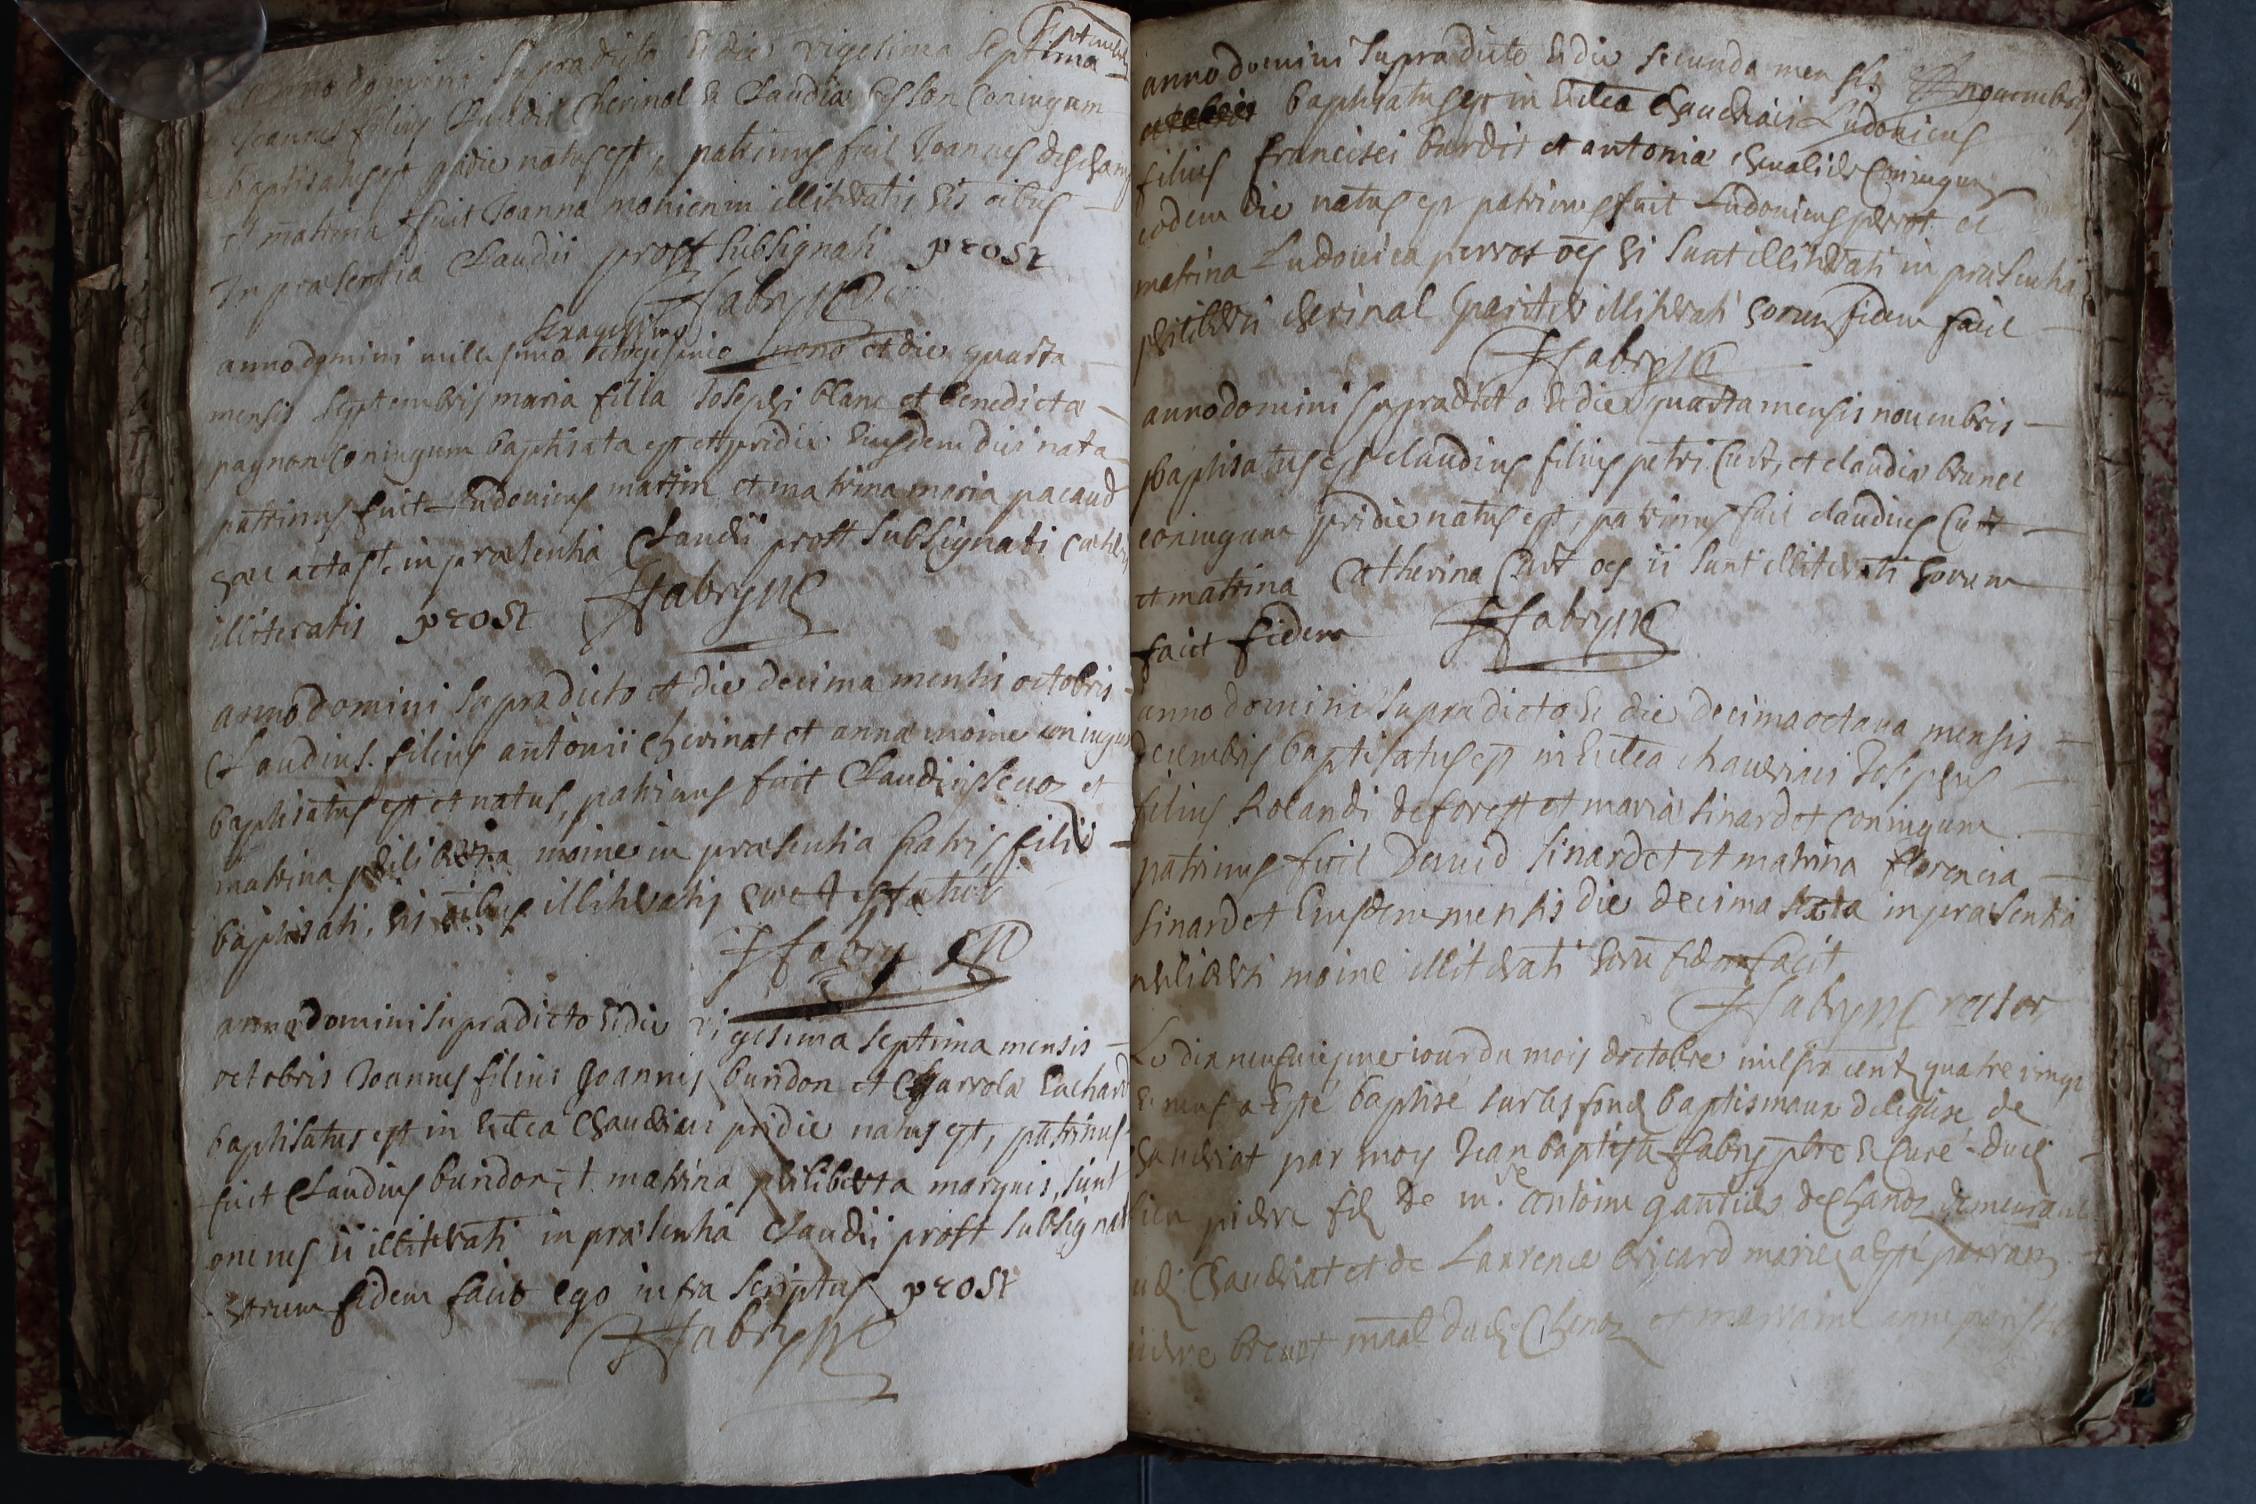 septembris
anno domini supradicto & die vigesima septima
Joannes filius Claudii Cherinal & Claudiæ coniugum
baptisatus est pridie natus est, patrinus fuit Joannes deschamp
et matrina fuit Joanna illitteratis his oibus
In præsentia Claudii prost subsignati prost
Fabry
sexagesimo
anno domini millesimo octogesimo nono et die quarta
mensis septembris maria filia Josephi blanc et benedictæ
pagnon coniugum baptisata est et pridie eiusdem diei nata
patrinus fuit Ludovicus martin et matrina maria pacaud
hæc acta st in præsentia Claudii prost subsignati cæteris
illiteratis prost Fabry
anno domini supradicto et die decima mensis octobris
Claudius filius antonii Cherinat et annæ moine coniugum
baptisatus est et natus, patrinus fuit Claudius et
matrina philiberta moine in præsentia patris filii
baptisati, his oibus illitteratis
Fabry
anno domini supradicto & die vigesima septima mensis
octobris Joannes filius Joannis buridon et
baptisatus est in eclea Chaudriaci pridie natus est, patrinus
fuit Claudius buridon, et matrina philiberta, sunt
omnes ii illitterati in præsentia Claudii prost subsignati
horum fidem facio ego infra scriptus prost
Fabry
anno domini supradicto & die secunda mensis novembris
baptisatus est in eclea Ludovicus
filius francisci burdit et antoniæ coniugum
eodem die natus est patrinus fuit Ludovicus perrot et
matrina Ludovica perrot oes hi sunt illitterati in præsentia
philiberti cherinal pariter illitterati horum fidem facit
Fabry
anno domini supradicto & die quarta mensis novembris
baptisatus est claudius filius petri Curt, et claudiæ brunet
coniugum pridie natus est, patrinus fuit claudius Curt
et matrina Catherina Curt oes ii sunt illitterati horum
facit fidem Fabry
anno domini supradicto & die decima octava mensis
decembris baptisatus est in eclea chaudriaci Josephus
filius Rolandi deforest et mariæ sinardet coniugum
patrinus fuit David sinardet et matrina florencia
sinardet eiusdem mensis die decima sexta in præsentia
philiberti moine illitterati horu fidem facit
Fabry rector
Le dix neufuieme iour du mois doctobre mil six cent quatre vingt
& neuf a esté baptisé sur les fons baptismaux de leglise de
par moy Jean baptiste fabry pbre & Curé dud
lieu pierre fils de mre antoine demeurant
aud et de Laurence bricard mariez a esté parrain
pierre dud et marraine anne